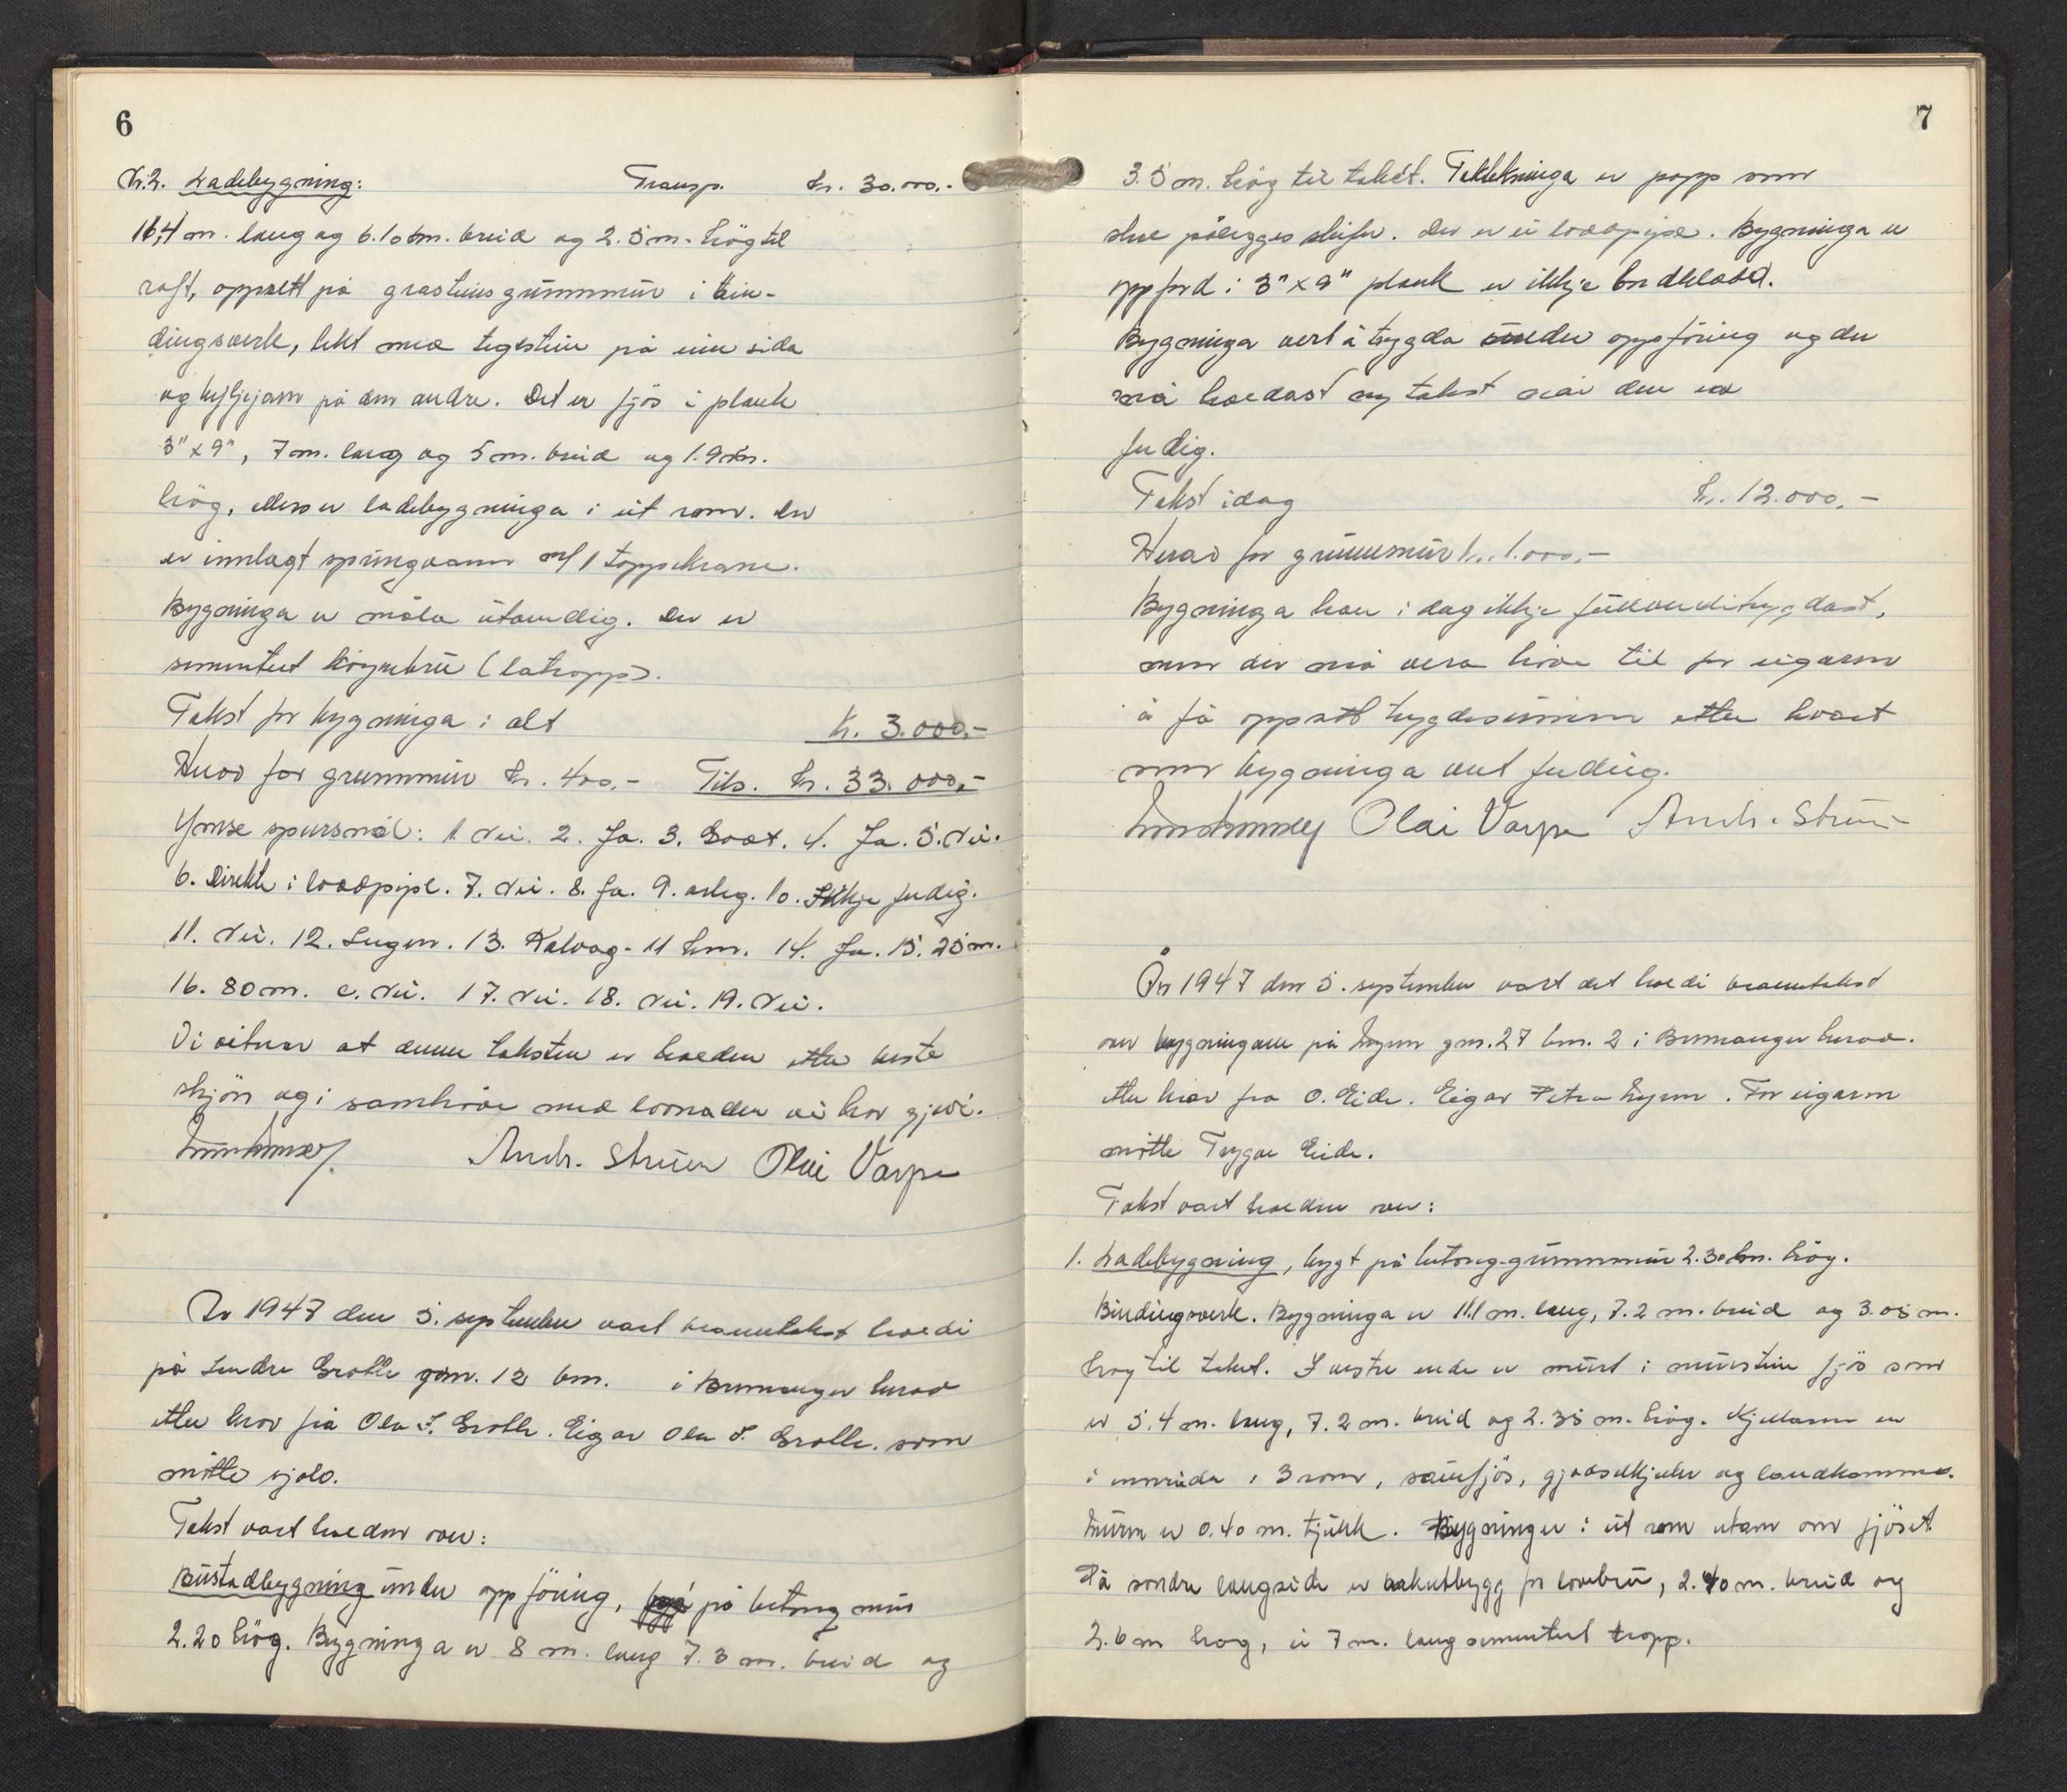 6
Nr. 2. Ladebygning: Transp. kr. 30.000.-
16,4 m. lang og 6.10 m. breid og 2.5 m. høg til
raft, oppsett på grasteins grunnmur i bin-
dingsverk, lekt med teglstein på eine sida
og bylgjejarn på den andre. Det er fjös i plank
3" x 9", 7 m. lang og 5 m. breid og 1.9 m.
hög, elles er ladebygninga i eit rom. Der
er innlagt springvann m/ 1 tappekrane.
Bygninga er måla utvendig. Der er
sementert köyrebru (låtropp).
Takst for bygninga i alt kr. 3.000.-
Herav for grunnmur kr. 400.- Tils. kr. 33.000,-
Ymse spursmål: 1. Nei. 2. Ja. 3. Godt. 4. Ja. 5. Nei.
6. Direkte i loddpipe. 7. Nei. 8. Ja. 9. årleg. 10. Ikkje ferdig.
11. Nei. 12. Ingen. 13. Kalvåg - 11 km. 14. Ja. 15. 25 m.
16. 80 m. c. Nei. 17. Nei. 18. Nei. 19. Nei.
Vi vitnar at denne taksten er halden etter beste
skjön og i samhöve med lovnaden vi har gjevi.
Andr. Struen Olai Varpe
År 1947 den 5. september vart branntakst haldi
på Indre Grotle gnr. 12 bnr. i Bremanger herad
etter krav frå Ola I. Grotle. Eigar Ola I. Grotle. som
mötte sjölv.
Takst vart halden over:
Bustadbygning under oppföring, på betong mur
2.20 hög. Bygninga er 8 m. lang 7.3 m. breid og
7
3.5 m. hög til taket. Taktekninga er papp som
skal pålegges skifer. Der er ei loddpipe. Bygninga er
oppförd i 3" x 9" plank er ikkje bordkledd.
Bygninga vert å trygda under oppföring og der
må haldast ny takst når den er
ferdig.
Takst idag kr. 12.000.-
Herav for grunnmur kr. 1.000.-
Bygninga kan i dag ikkje fullverditrygdast,
men der må vera höve til for eigaren
å få oppsett trygdesummen etter kvart
som bygninga vert ferdig.
Olai Varpe Andr. Struen
År 1947 den 5. september vart det haldi branntakst
over bygningane på gnr. 27 bnr. 2 i Bremanger herad.
etter krav fra O. Eide. Eigar Petra. For eigaren
mötte Trygve Eide.
Takst vart halden over:
1. Ladebygning, bygt på betong-grunnmur 2.30 m. hög.
Bindingsverk. Bygninga er 11.1 m. lang, 7.2 m. breid og 3.05 m.
hög til taket. I vestre ende er murt i murstein fjös som
er 5.4 m. lang, 7.2 m. breid og 2.35 m. hög. Kjellaren er
i innreida i 3 rom, sauefjös, gjödselkjeller og landkammer.
Muren er 0.40 m. tjukk. Bygningen i eit rom utan om fjöset.
På söndre langside er utbygg for låvebru, 2.40 m. breid og
2.6 m hög, ei 7 m. lang sementert tropp.